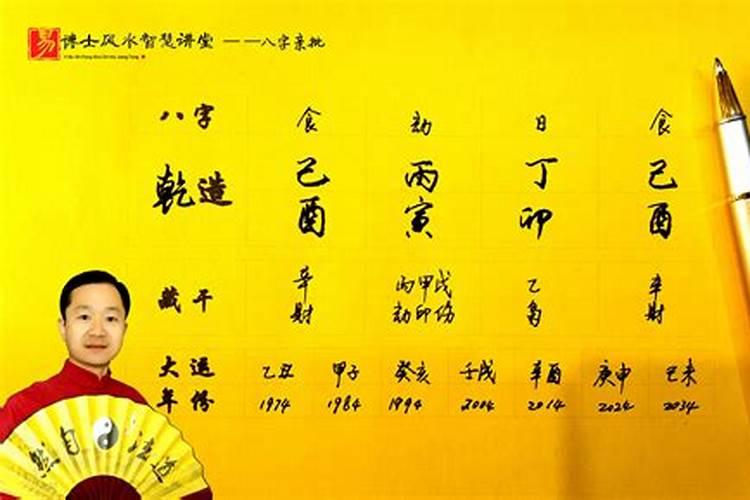 易 博士风水智慧讲堂 ——八字亲批
八字 食 劫 日 食
乾造 己 丙 丁 己
酉 寅 卯 酉
藏干 辛 丙甲戊 乙 辛
财 劫印伤 枭 财
大运 乙丑 甲子 癸亥 壬戌 辛酉 庚申 己未
年份 1974 1984 1994 2004 2014 2024 2034
然自 法道